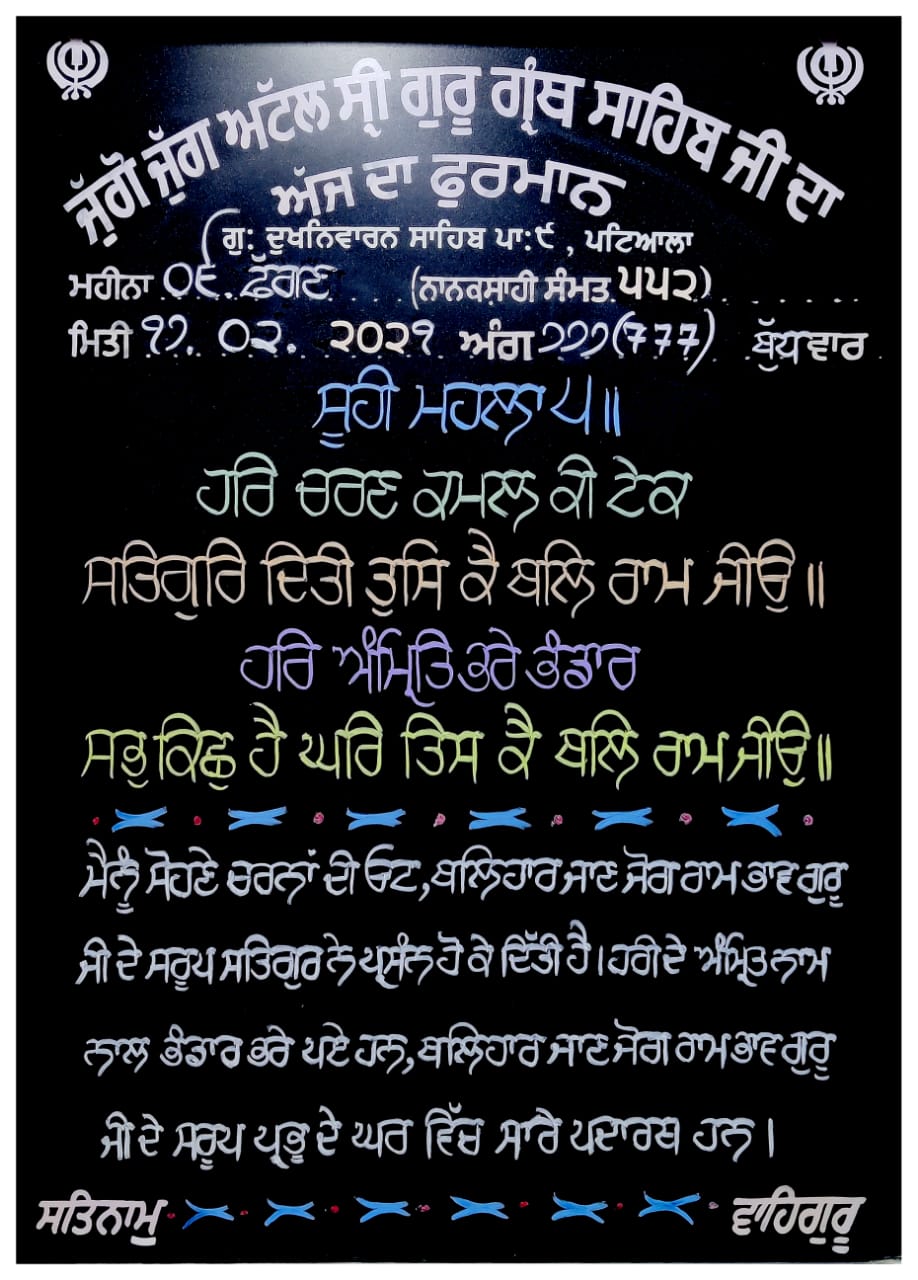 ਜੁੱਗੋ ਜੁੱਗ ਅੱਟਲ ਸ੍ਰੀ ਗੁਰੂ ਗ੍ਰੰਥ ਸਾਹਿਬ ਜੀ ਦਾ
ਅੱਜ ਦਾ ਫੁਰਮਾਨ
ਗੁ: ਦੁਖਨਿਵਾਰਨ ਸਾਹਿਬ ਪਾ:੯ , ਪਟਿਆਲਾ
ਮਹੀਨਾ ੦੯ ਫੱਗਣ (ਨਾਨਕਸ਼ਾਹੀ ਸੰਮਤ ੫੫੨)
ਮਿਤੀ ੧੧. ੦੨. ੨੦੨੧ ਅੰਗ ੭੭੭(777) ਬੁੱਧਵਾਰ
ਸੂਹੀ ਮਹਲਾ ੫॥
ਹਰਿ ਚਰਣ ਕਮਲ ਕੀ ਟੇਕ
ਸਤਿਗੁਰਿ ਦਿਤੀ ਤੁਸਿ ਕੈ ਬਲਿ ਰਾਮ ਜੀਉ ॥
ਹਰਿ ਅੰਮ੍ਰਿਤਿ ਭਰੇ ਭੰਡਾਰ
ਸਭੁ ਕਿਛੁ ਹੈ ਘਰਿ ਤਿਸ ਕੈ ਬਲਿ ਰਾਮ ਜੀਉ॥
ਮੈਨੂੰ ਸੋਹਣੇ ਚਰਨਾਂ ਦੀ ਓਟ,ਬਲਿਹਾਰ ਜਾਣ ਜੋਗ ਰਾਮ ਭਾਵ ਗੁਰੂ
ਜੀ ਦੇ ਸਰੂਪ ਸਤਿਗੁਰ ਨੇ ਪ੍ਰਸੰਨ ਹੋ ਕੇ ਦਿੱਤੀ ਹੈ।ਹਰੀ ਦੇ ਅੰਮ੍ਰਿਤ ਨਾਮ
ਨਾਲ ਭੰਡਾਰ ਭਰੇ ਪਏ ਹਨ,ਬਲਿਹਾਰ ਜਾਣ ਜੋਗ ਰਾਮ ਭਾਵ ਗੁਰੂ
ਜੀ ਦੇ ਸਰੂਪ ਪ੍ਰਭੂ ਦੇ ਘਰ ਵਿੱਚ ਸਾਰੇ ਪਦਾਰਥ ਹਨ।
ਸਤਿਨਾਮੁ ਵਾਹਿਗੁਰੂ